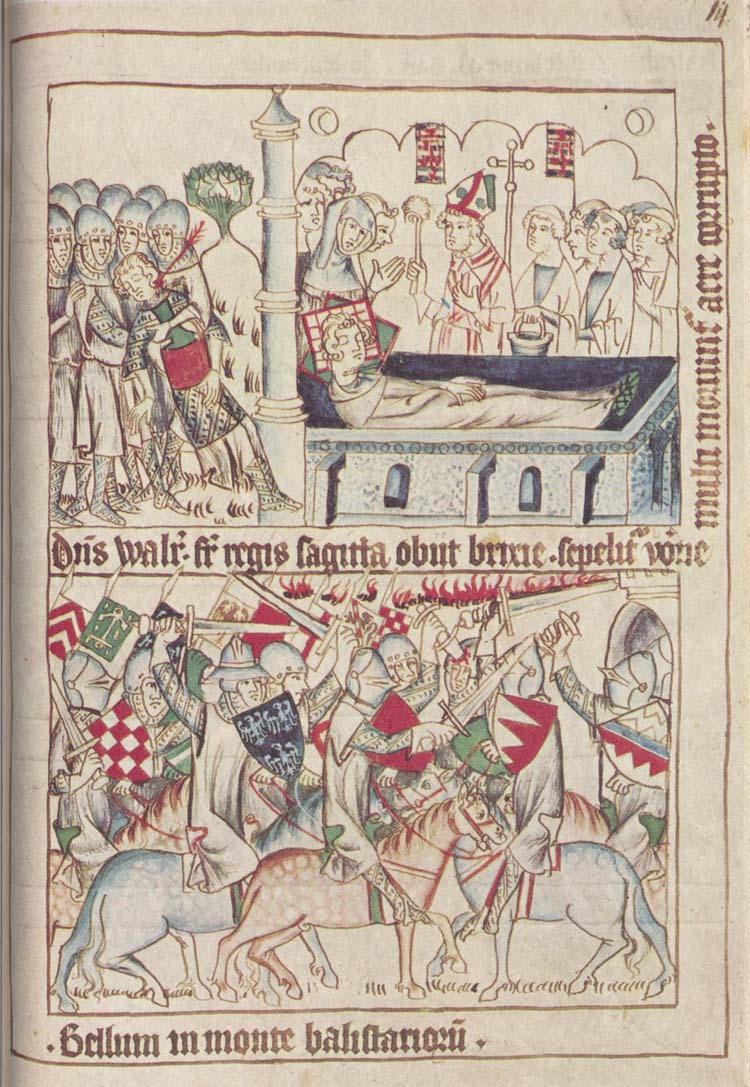 14
Dns walr. fr regis sagitta obiit brixie. sepelit v͛one
multi moriunt͛ aere corrupto.
Bellum in monte balistarioru͂.